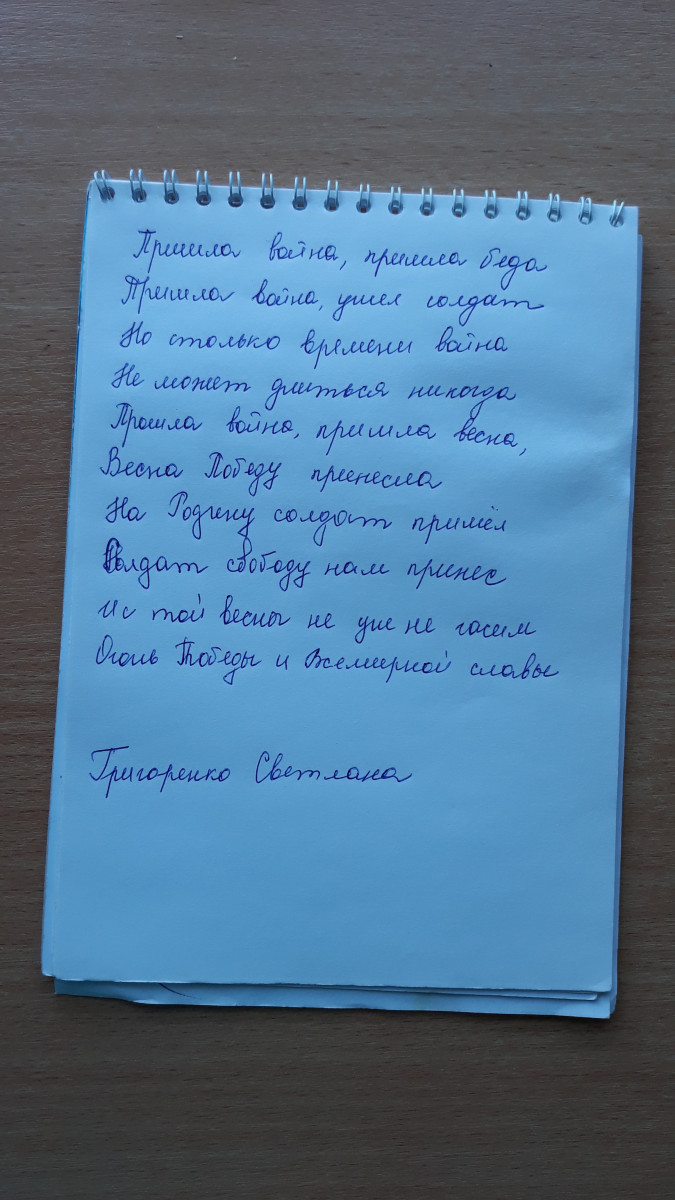 Пришла война, пришла беда
Пришла война, ушел солдат
Но столько времени война
Не может длиться никогда
Прошла война, пришла весна,
Весна Победу принесла
На Родину солдат пришёл
Солдат свободу нам принес
И с той весны не уже не гасим
Огонь Победы и Всемирной славы
Григоренко Светлана